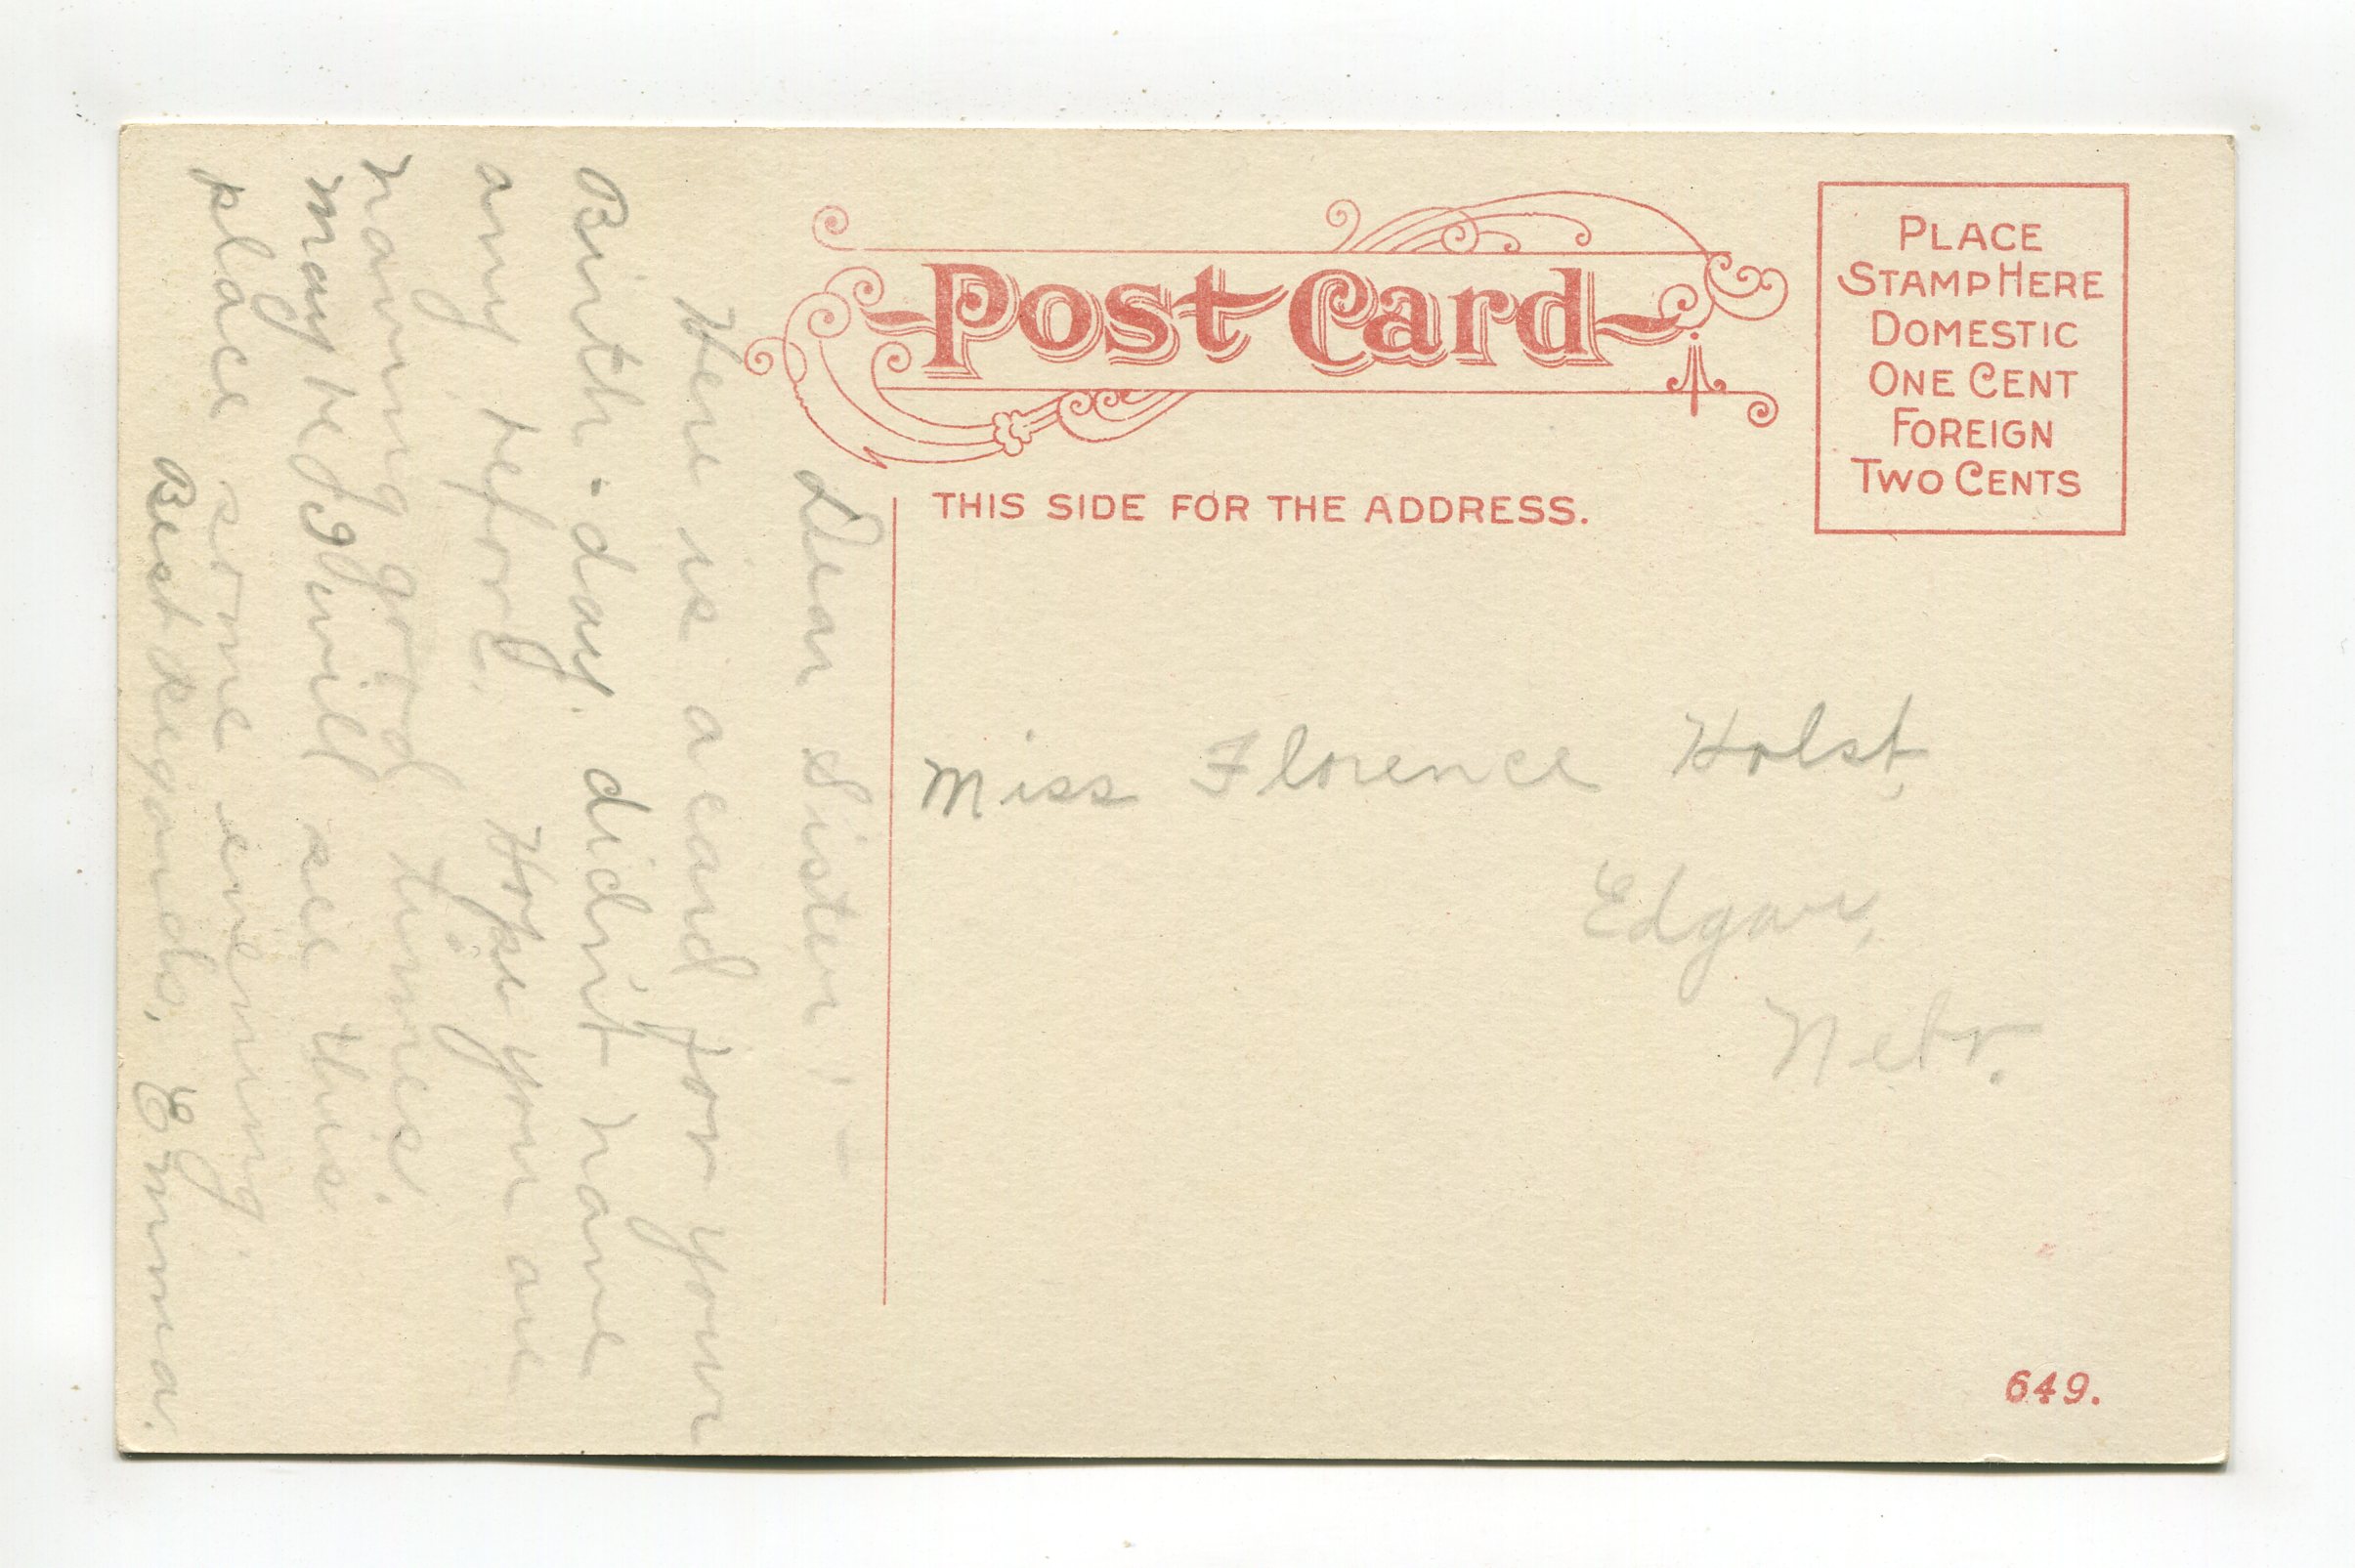 Post Card
PLACE
STAMP HERE
DOMESTIC
ONE CENT
FOREIGN
TWO CENTS
THIS SIDE FOR THE ADDRESS.
Dear Sister! –
Here is a card for your
Birth-day. didn't have
any before. Hope you are
having good times.
may be I will see this
place some evening.
Best regards, Emma.
Miss Florence Holst,
Edgar,
Nebr.
649.